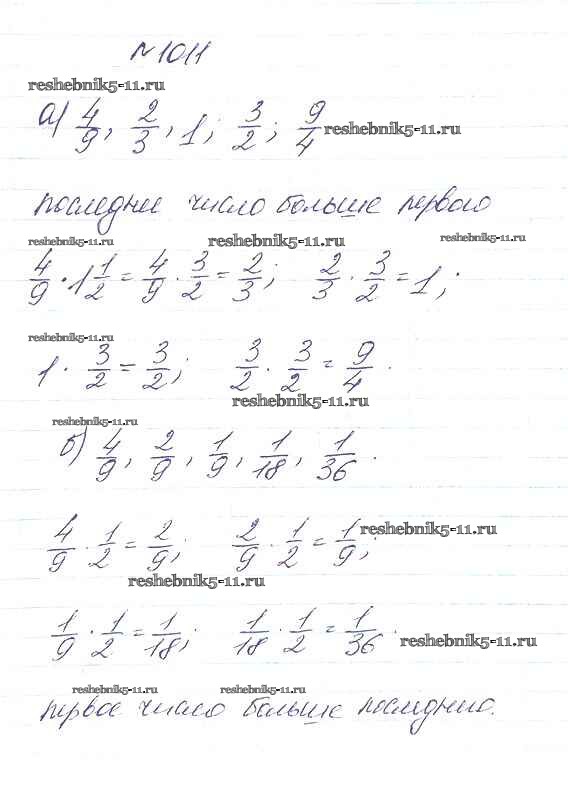 №1011
reshebnik5-11.ru
а) 4/9, 2/3, 1; 3/2; 9/4 reshebnik5-11.ru
последнее число больше первого
reshebnik5-11.ru reshebnik5-11.ru reshebnik5-11.ru
4/9 · 1 1/2 = 4/9 · 3/2 = 2/3; 2/3 · 3/2 = 1;
reshebnik5-11.ru
1 · 3/2 = 3/2; 3/2 · 3/2 = 9/4.
reshebnik5-11.ru
reshebnik5-11.ru
б) 4/9, 2/9, 1/9, 1/18, 1/36.
4/9 · 1/2 = 2/9; 2/9 · 1/2 = 1/9; reshebnik5-11.ru
reshebnik5-11.ru
1/9 · 1/2 = 1/18; 1/18 · 1/2 = 1/36. reshebnik5-11.ru
reshebnik5-11.ru reshebnik5-11.ru
первое число больше последнего.